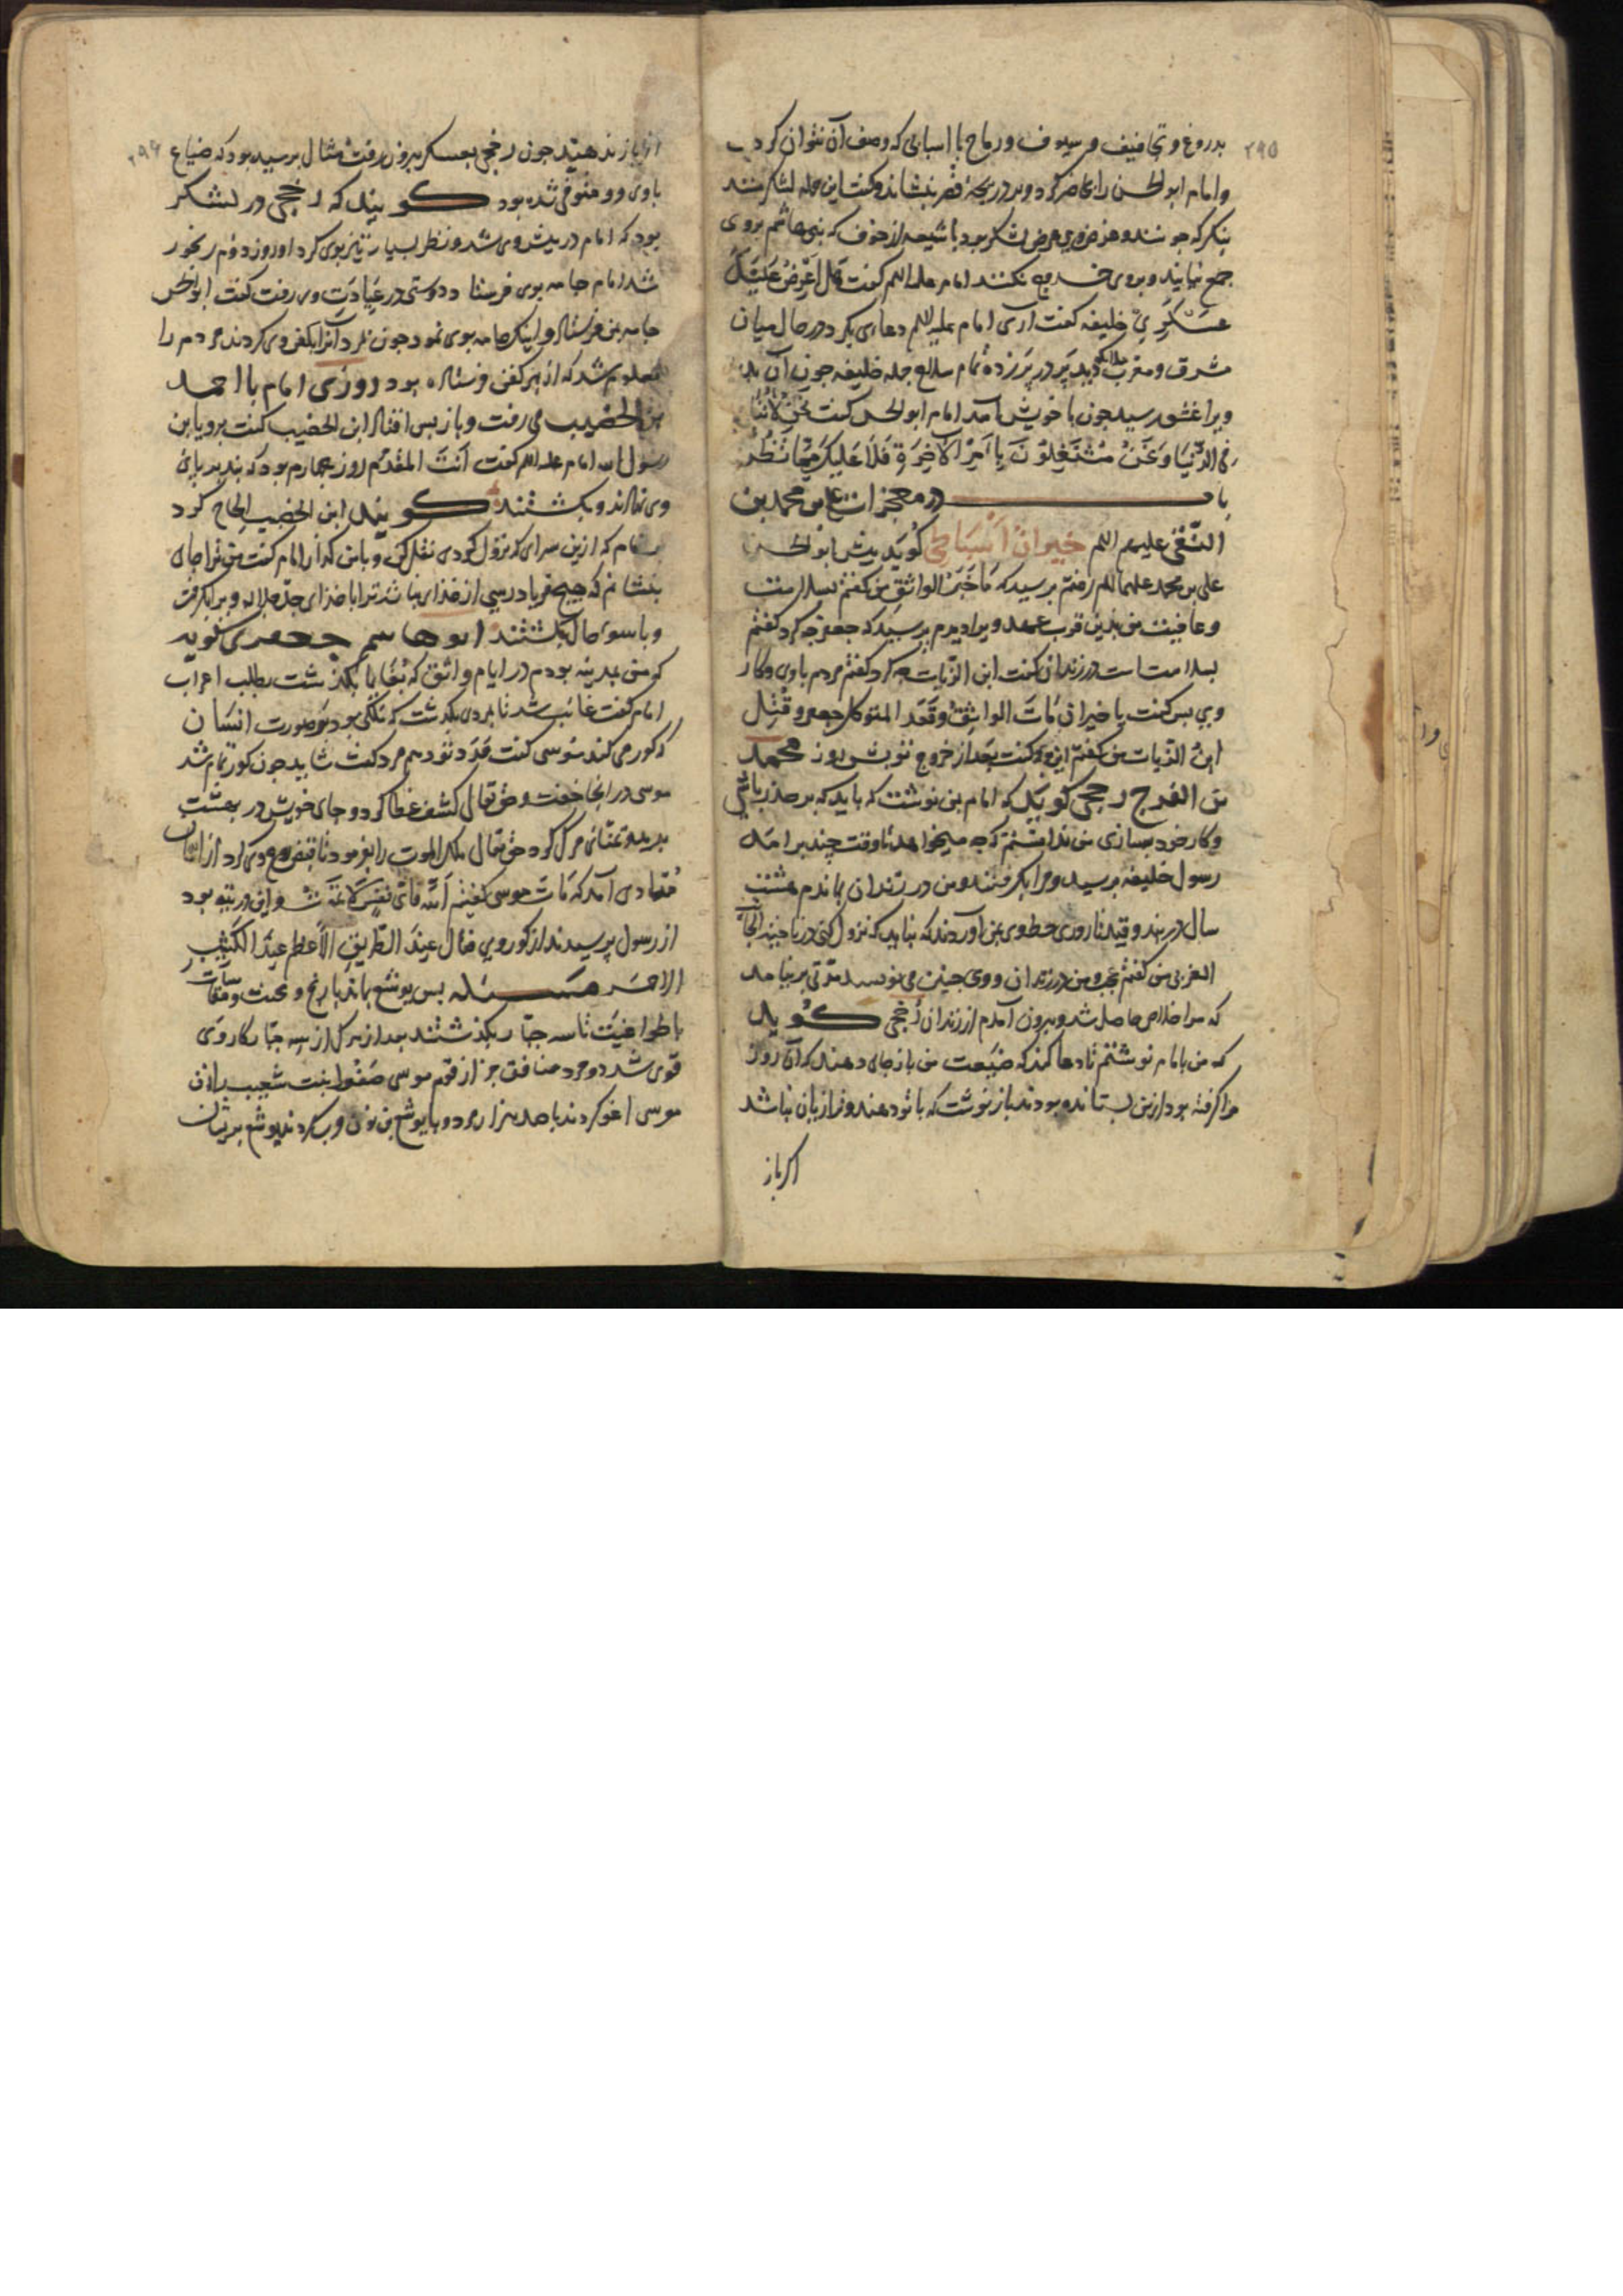 ۲۹۵
بدروغ و تجافیف و سیوف و رماح با اسبابی که وصف آن نتوان کرد
و امام ابو الحسن را حاضر کرد و بر دریچهٔ قصر بنشاند و گفت این جمله لشکر منند
بنکر که چو شند و غرض وی عرض لشکر بود با شیعه از خوف که بنی هاشم بر وی
جمع نیایند و بر وی خروج نکنند امام علیه السلم گفت هَل اَعْرِضُ عَلَیْکَ
عَسْکَرِی خلیفه گفت آری امام علیه السلم دعای بکرد در حال میان
مشرق و مغرب ملائکه دید پر در پر زده تمام سلاح جمله خلیفه چون آن بدید
ویرا غشی رسید چون با خویش آمد امام ابو الحسن گفت نَحْنُ لَا
فی الدُّنْیَا وَنَحْنُ مُشْتَغِلُونَ بِاَمْرِ الْآخِرَةِ فَلَا عَلَیْکَ مِمَّا تَظُنُّ
باب در معجزات علی بن محمد بن
النقی علیهم السلم خیران اسباطی گوید پیش ابو الحسن
علی بن محمد علیهما السلم رفتم پرسید که مَا خَبَرُ الواثق من گفتم بسلامت
و عافیت من بدین قرب عهد ویرا دیدم پرسید که جعفر چه کرد گفتم
بسلامت است در زندان گفت ابن الزیات چه کرد گفتم مردم با وی و کار
وی بس گفت یا خیران مَاتَ الواثِقُ وَقَعَدَ المتوکل جعفر وقُتِلَ
ابن الزیات من گفتم این وی گفت بعد از خروج تو بشش روز محمد
بن الفرج رخجی گوید که امام بمن نوشت که باید که بر حذر باشی
و کار خود بسازی من ندانستم که چه میخواهد تا وقت چند برآمد
رسول خلیفه برسید و مرا بگرفتند و من در زندان بماندم هشت
سال در بند و قید تا روزی خطوی بمن آوردند که نباید که نزول کنی در ناحیة الجانب
الغربی من گفتم عجب من در زندان و وی چنین می نویسد مدتی برنیامد
که مرا خلاص حاصل شد و بیرون آمدم از زندان رخجی گوید
که من بامام نوشتم تا دعا کند که ضیعت من باز جای دهند که آن روز
مرا گرفته بود از من بستانده بودند باز نوشت که با تو دهند و ترا زیان نباشد
اگر باز
۲۹۶
اگر باز ندهند چون رخجی بعسکر بیرون رفت مثال برسید بود که ضیاع
با وی و و متوفی شده بود گویند که رخجی در لشکر
بود که امام در پیش وی شد و نظر بسیار تیز بوی کرد او روز دوم رنجور
شد امام جامه بوی فرستاد دوستی در عیادت وی رفت گفت ابو الحسن
جامه بمن فرستاد و اینک جامه بوی نمود چون مرد آنرا بکفن وی کردند مردم را
معلوم شد که از بهر کفن فرستاده بود روزی امام با احمد
بن الخضیب می رفت و باز پس افتاد ابن الخضیب گفت برو یا بن
رسول الله امام علیه السلم گفت اَنْتَ المُقَدَّم روز چهارم بود که بند بر پای
وی نهادند و بکشتند گویند ابن الخضیب الحاح کرد
بر امام که ازین سرای که نزول کردی نقل کن و با من گذار امام گفت من ترا جای
بنشانم که هیچ فریاد رسی از خدای نباشد ترا با خدای جل جلاله ویرا بگرفت
و با سوی حال بکشتند ابو هاشم جعفری گوید
که من بمدینه بودم در ایام واثق که بُغا بما بگذشت بطلب اعراب
امام گفت غائب شد تا بمردی بگذشت که ملکی بود بر صورت انسان
که گور می کند موسی گفت قدّ و نوّد هم مرد گفت شاید چون گور تمام شد
موسی در آنجا خفت و حق تعالی کشف غطا کرد و جای خویش در بهشت
بدید و تمنای مرگ کرد حق تعالی ملک الموت را بفرمود تا قبض روح وی کرد از آسمان
منادی آمد که مَاتَ موسی کلیم الله فای نفس لا تموت و این در تیه بود
از رسول پرسیدند از گور وی فقال عِندَ الطَّرِیقِ الاَعظم عِندَ الکَثِیبِ
الاحمر مسئله پس یوشع بماند با رنج و محنت و مقاسات
با طواغیت تا سه جبار بگذشتند بعد از مرگ از سه جبار کار وی
قوی شد دو مرد منافق جز از قوم موسی صفورا بنت شعیب بزن
موسی اغو کردند با صد هزار مرد و با یوشع بن نون حرب کردند یوشع بریشان